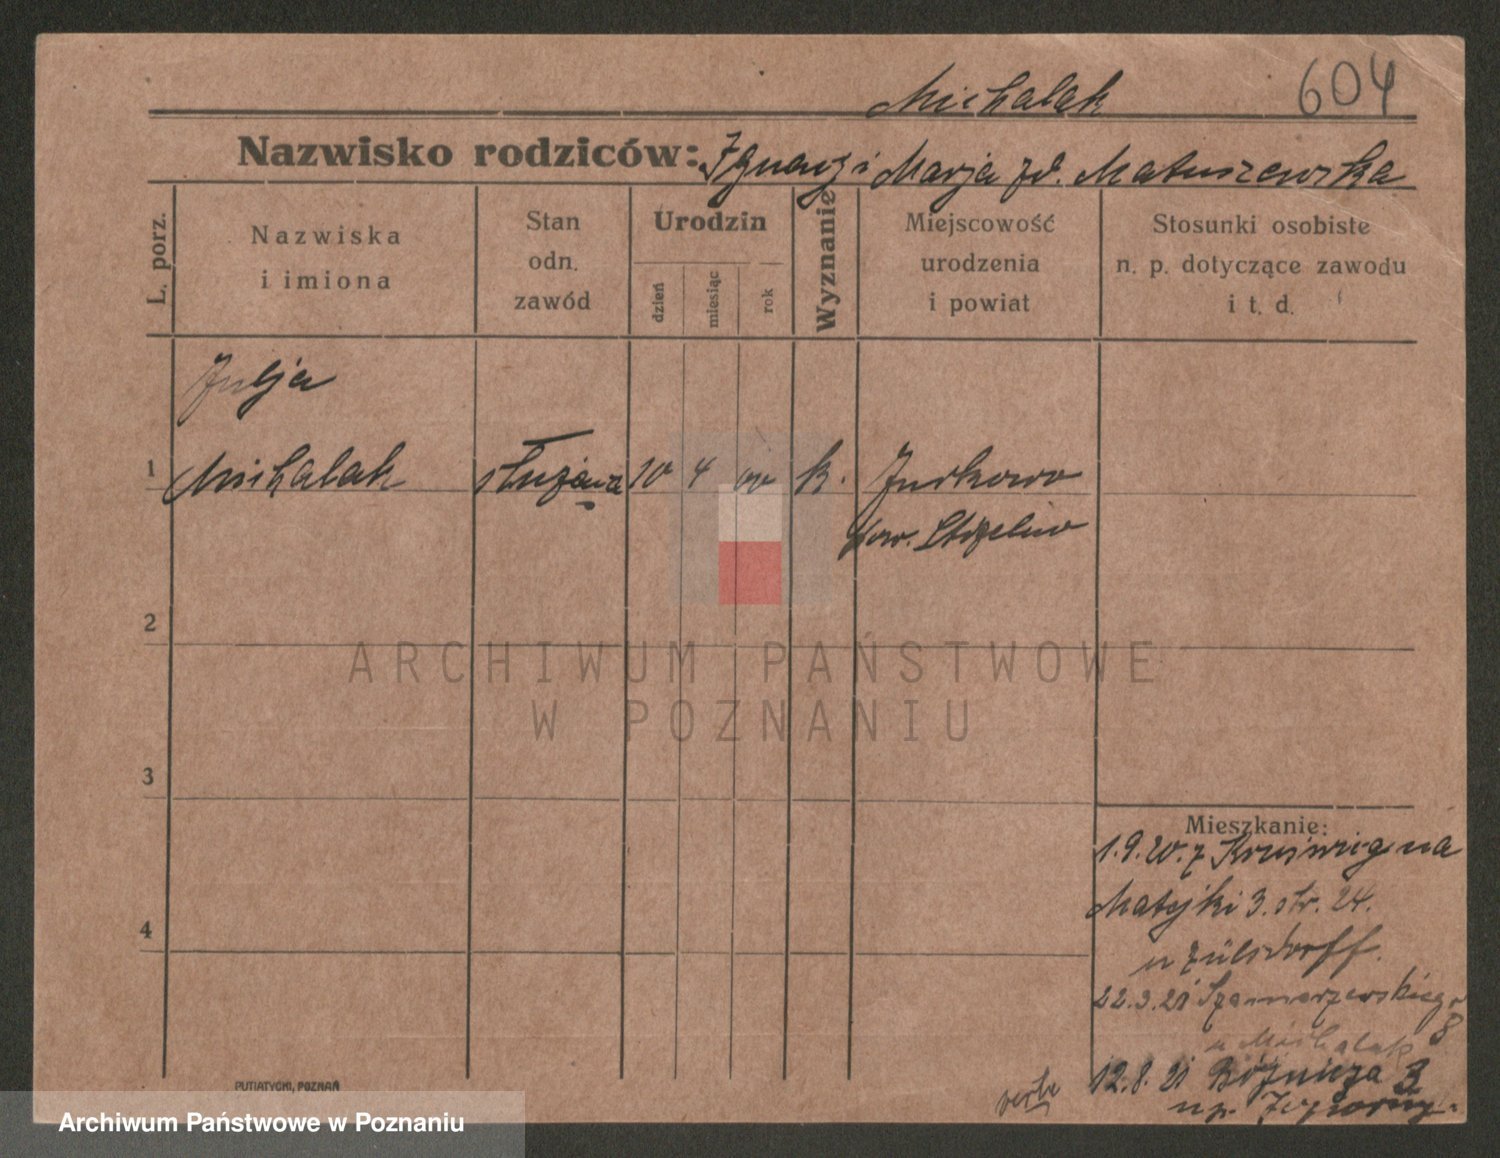 Michalak 604
Nazwisko rodziców: Ignacy i Marja zd. Matuszewska
L. porz.
Nazwiska
i imiona
Stan
odn.
zawód
Urodzin
dzień
miesiąc
rok
Wyznanie
Miejscowość
urodzenia
i powiat
Stosunki osobiste
n. p. dotyczące zawodu
i t. d.
Julja
1 Michalak służąca 10 4 00 k. Jurkowo
pow. Strzelno
2
ARCHIWUM PAŃSTWOWE
W POZNANIU
3
4
Mieszkanie:
1.9.20. z Kruświcy na
Matejki 3. str. 24.
u Zülsdorff.
22.3.21 Szamarzewskiego
8
u Michalak
12.8.21 Bóżnicza 3
verte
PUTIATYCKI, POZNAŃ
Archiwum Państwowe w Poznaniu